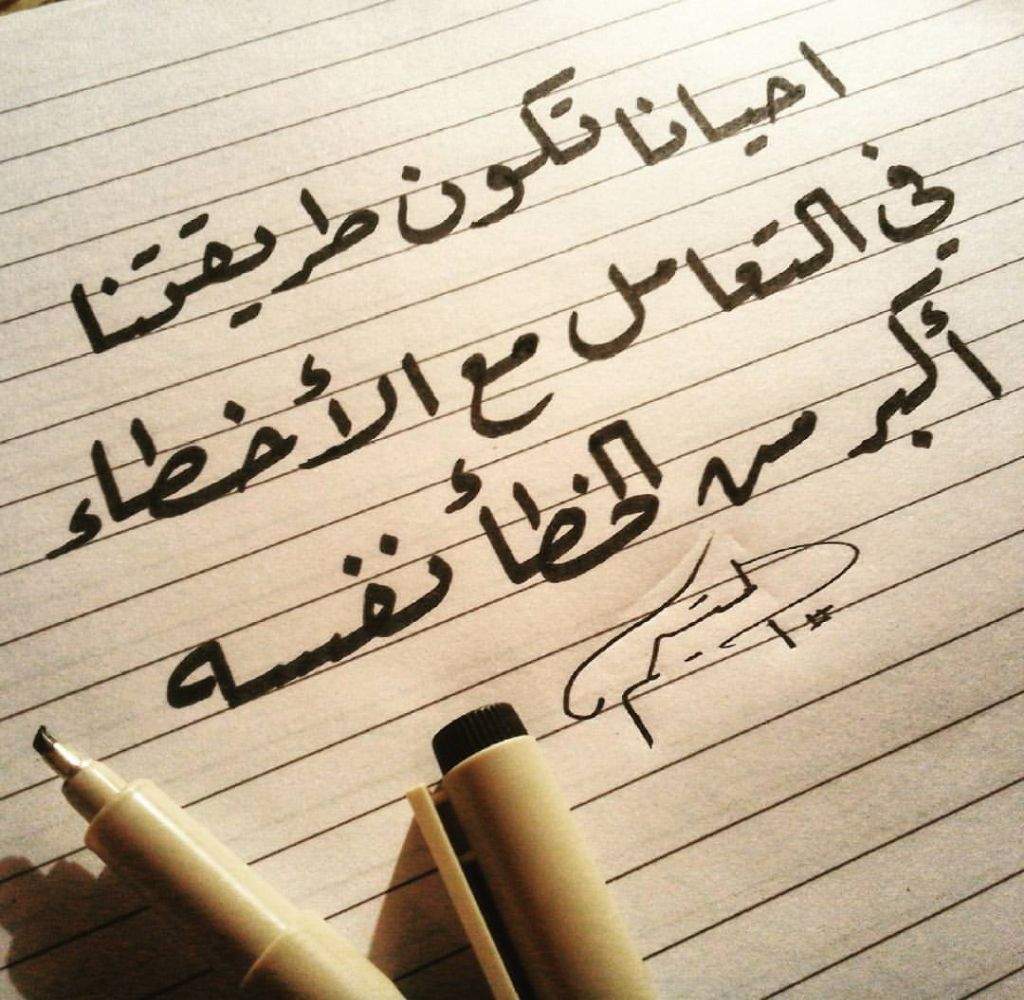 احيانا تكون طريقتنا
في التعامل مع الأخطاء
أكبر من الخطأ نفسه